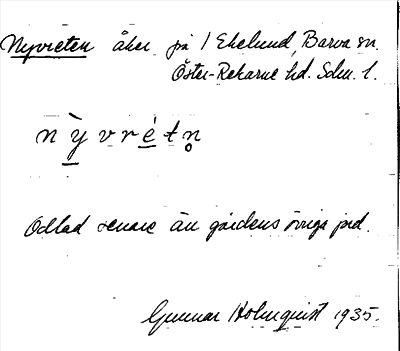 Nyvreten åker på 1 Ekelund, Barva sn.
Öster-Rekarne hd. Sdm. l.
nỳvrétn̥
Odlad senare än gårdens övriga jord.
Gunnar Holmquist 1935.